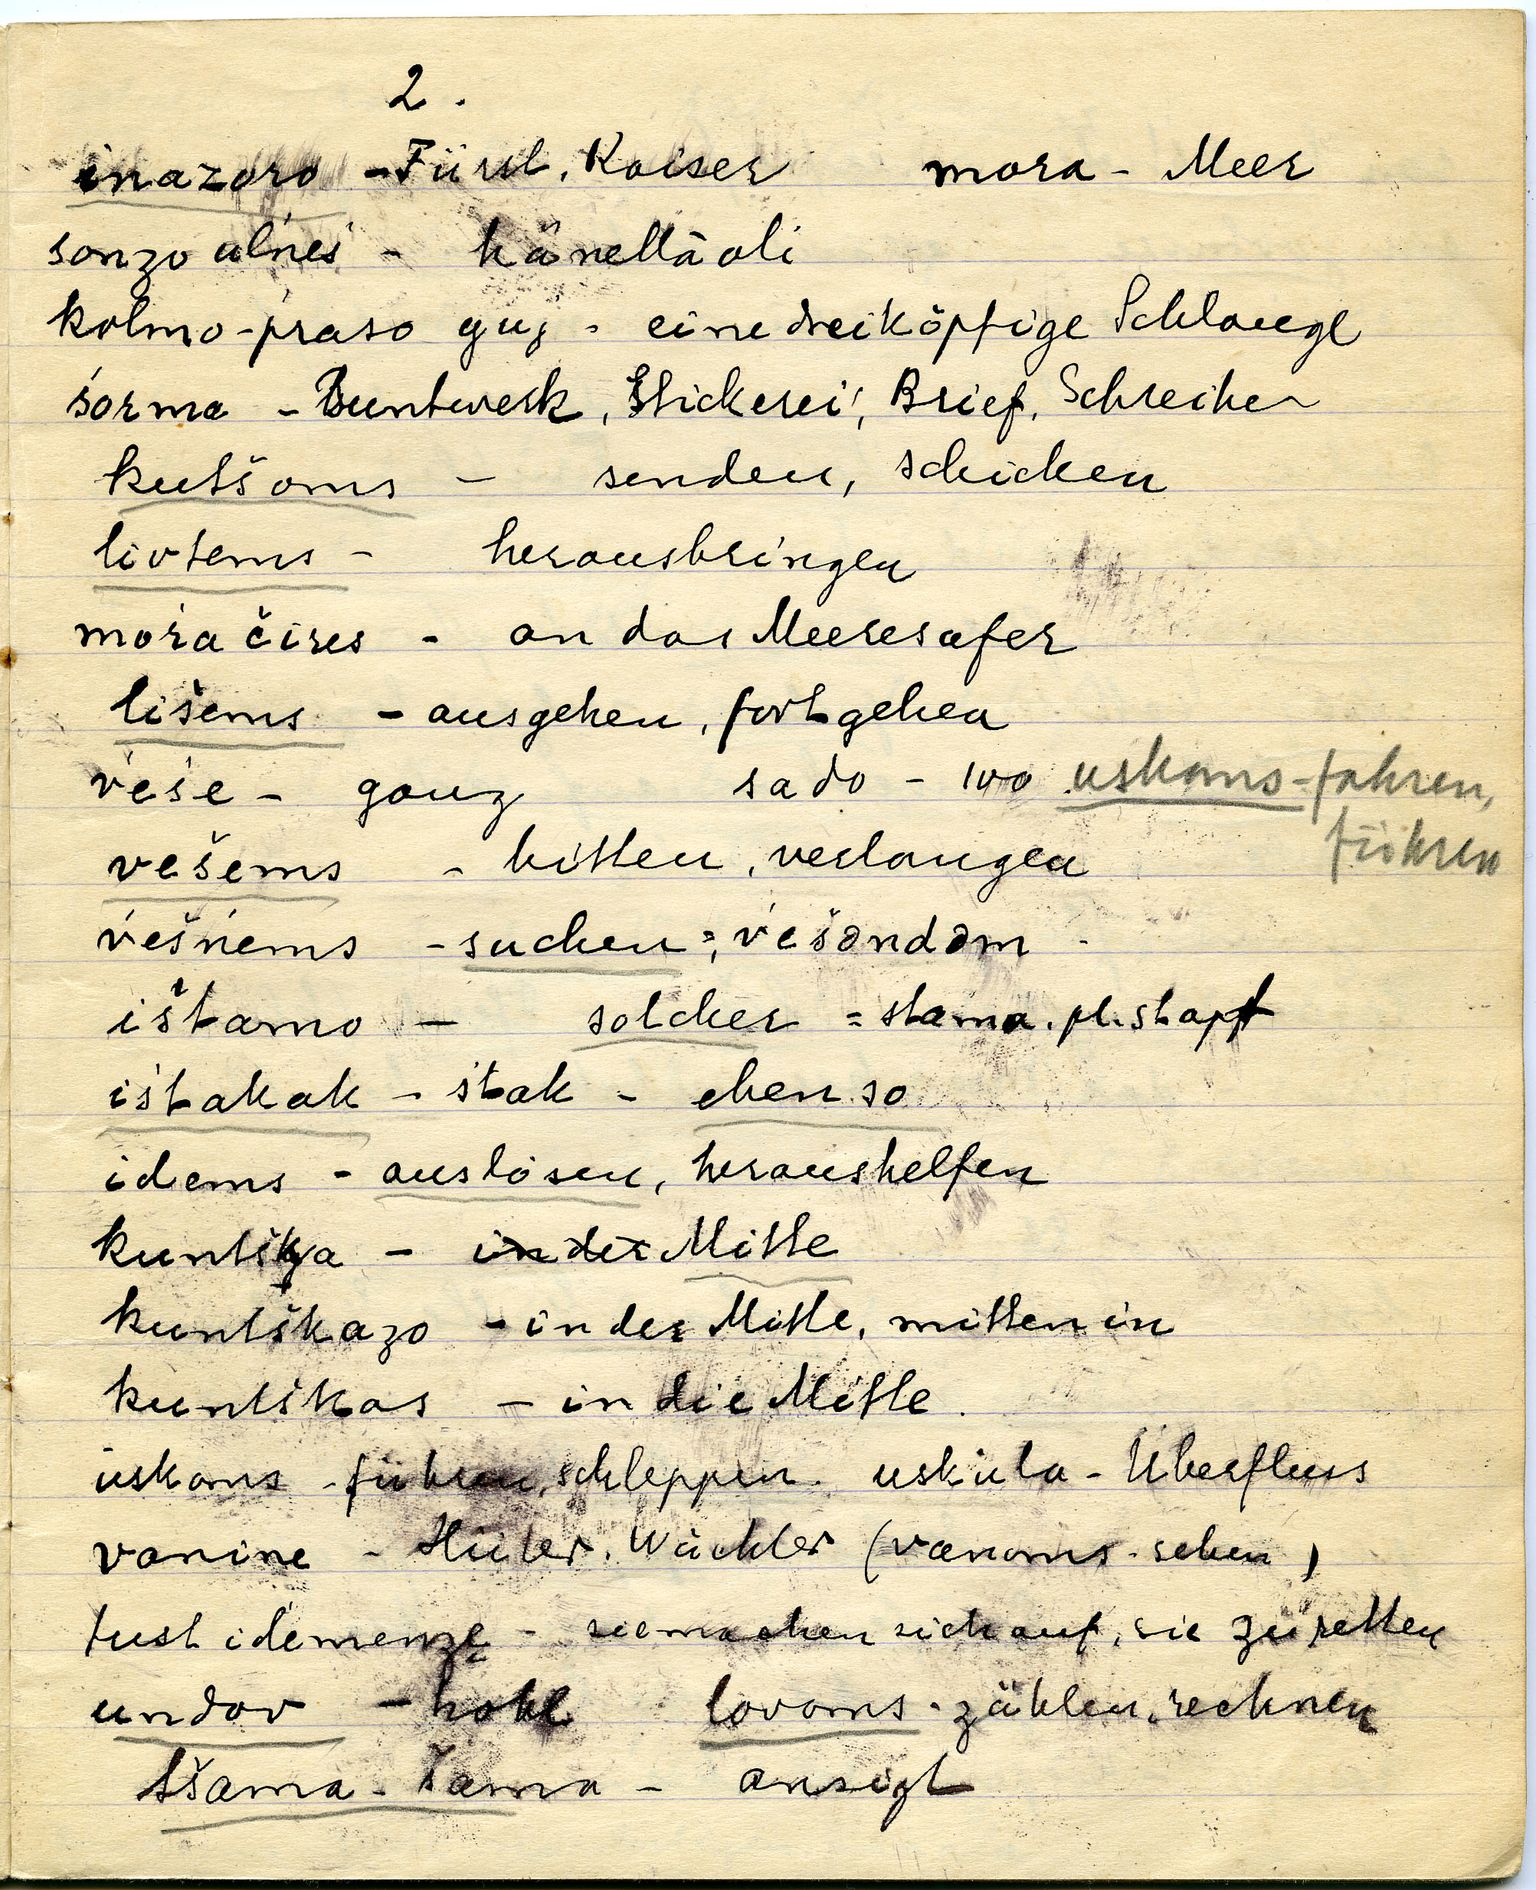 2.
inazoro - Fürst, Kaiser mora - Meer
sonzo alńeś - häneltä oli
kolmo-praso guj - eine dreiköpfige Schlange
śorma - Buntwerk, Stickerei, Brief, Schreiben
kutšoms - senden, schicken
livtems - herausbringen
mora čires - an das Meeresufer
lišems - ausgehen, fortgehen
veśe - ganz sado - 100 uskoms - fahren,
führen
vešems - bitten, verlangen
vešńems - suchen; vešəndəm -
ištamo - solcher = stama. pl. stapt
iśtakak - śtak - ebenso
idems - auslösen, heraushelfen
kuntška - in der Mitte
kuntškazo - in der Mitte, mitten in
kuntškas - in die Mitte.
uskoms - führen, schleppen. uskula - Überfluss
vanine - Hüter, Wächter (vanoms - sehen)
tust idemenze - sie machen sich auf, sie zu retten
undov - hohl lovoms - zählen, rechnen
tšama - šama - ansigt